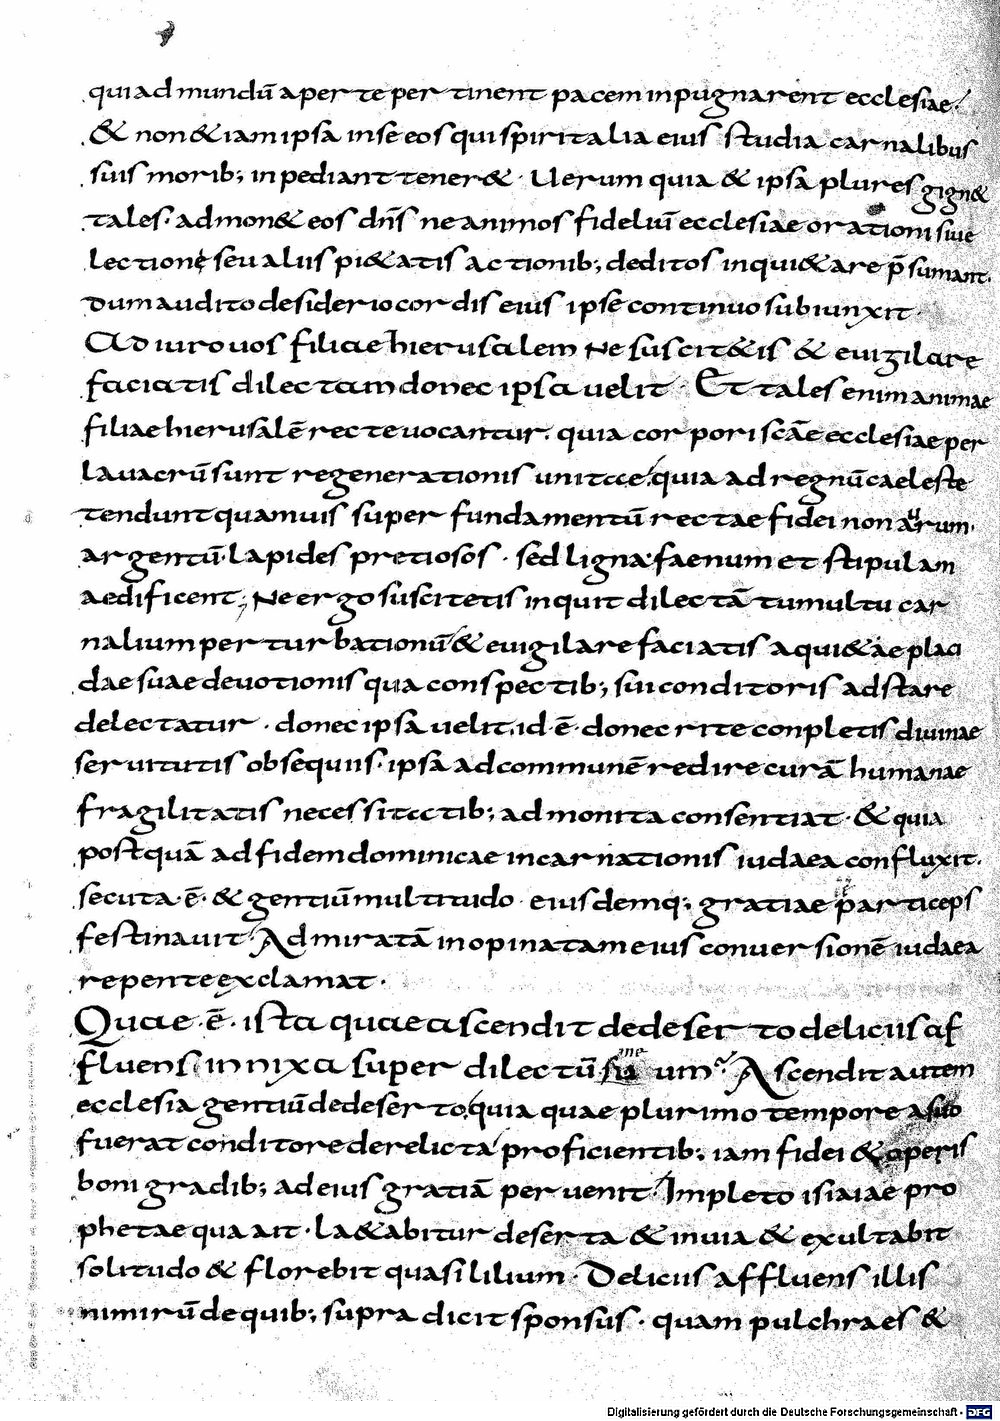 qui ad mundū aperte pertinent pacem inpugnarent ecclesiae.
& non &iam ipsa in se eos qui spiritalia eius studia carnalibus
suis morib; inpediant tener&. Uerum quia & ipsa plures gign&
tales. admon& eos dn̄s ne animos fideliū ecclesiae orationi siue
lectione seu aliis pi&atis actionib; deditos inqui&are p̄sumant.
dum audito desiderio cordis eius ipse continuo subiunxit.
Adiuro uos filiae hierusalem Ne suscit&is & euigilare
faciatis dilectam donec ipsa uelit. Et tales enim animae
filiae hierusalē recte uocantur. quia corpori scāe ecclesiae per
lauacrū sunt regenerationis unitae. quia ad regnū caeleste
tendunt quamuis super fundamentū rectae fidei non aurum.
argentū. lapides pretiosos. sed ligna. faenum et stipulam
aedificent; Ne ergo suscitetis inquit dilectā tumultu car
nalium perturbationū & euigilare faciatis a qui&ae placi
dae suae deuotionis qua conspectib; sui conditoris adstare
delectatur. donec ipsa uelit. id ē. donec rite conpletis diuinae
seruitutis obsequiis. ipsa ad communē redire curā humanae
fragilitatis necessitatib; admonita consentiat. & quia
postquā ad fidem dominicae incarnationis iudaea confluxit.
secuta .ē. & gentiū multitudo eiusdemq; gratiae particeps
festinauit. Admiratā inopinatam eius conuersionē iudaea
repente exclamat.
Quae .ē. ista quae ascendit de deserto deliciis af
fluens innixa super dilectū suum. Ascendit autem
ecclesia gentiū de deserto. quia quae plurimo tempore a suo
fuerat conditore derelicta proficientib; iam fidei & operis
boni gradib; ad eius gratiā peruenit. Impleto isaiae pro
phetae qua ait. La&abitur deserta & inuia & exultabit
solitudo & florebit quasi lilium. Deliciis affluens illis
nimirū de quib; supra dicit sponsus. quam pulchra es &
Digitalisierung gefördert durch die Deutsche Forschungsgemeinschaft - DFG